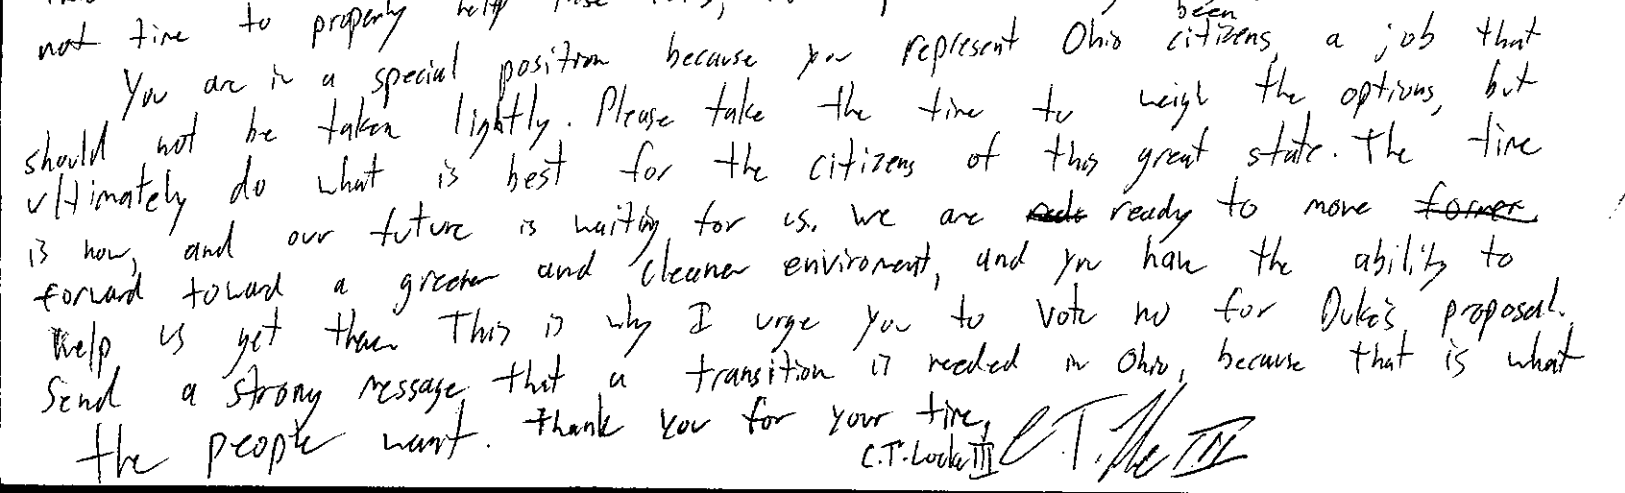 not time to properly help
been
You are in a special position because you represent Ohio citizens, a job that
should not be taken lightly. Please take the time to weigh the options, but
ultimately do what is best for the citizens of this great state. The time
is now, and our future is waiting for us. We are ready to move former
forward toward a greener and cleaner enviroment, and you have the ability to
help us get there. This is why I urge you to vote no for Duke's proposal.
Send a strong message that a transition is needed in Ohio, because that is what
the people want. Thank you for your time,
C.T. Locke III